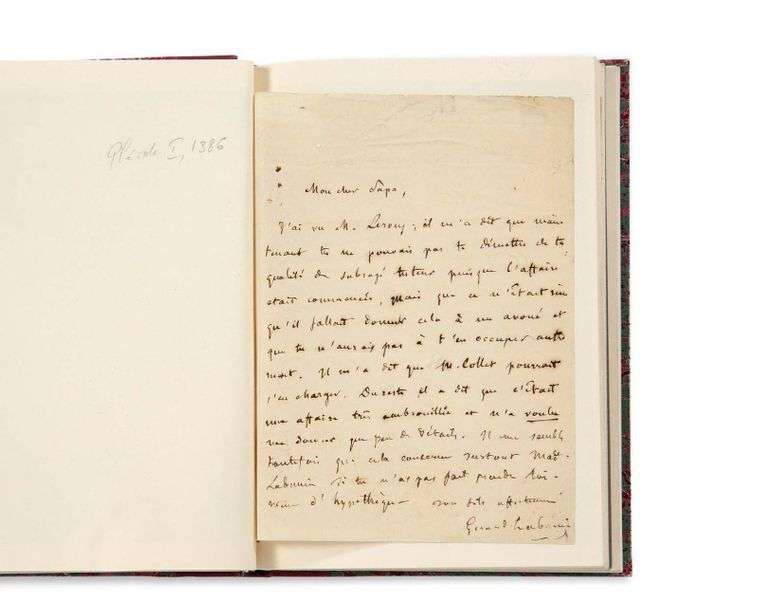 Pléiade I, 1386
Mon cher Papa,
J'ai vu M. Leroy; il m'a dit que main
tenant tu ne pouvais pas te démettre de ta
qualité de subrogé tuteur puisque l'affaire
était commencée, mais que ce n'était rien
qu'il fallait donner cela à un avoué et
que tu n'aurais pas à t'en occuper autre
ment. Il m'a dit que M. Collet pourrait
s'en charger. Du reste il a dit que c'était
une affaire très embrouillée et n'a voulu
me donner que peu de détails. Il me semble
toutefois que cela concerne surtout Mad.
Labrunie si tu n'as pas fait prendre
d'hypothèque ton fils affectionné
Gérard Labrunie